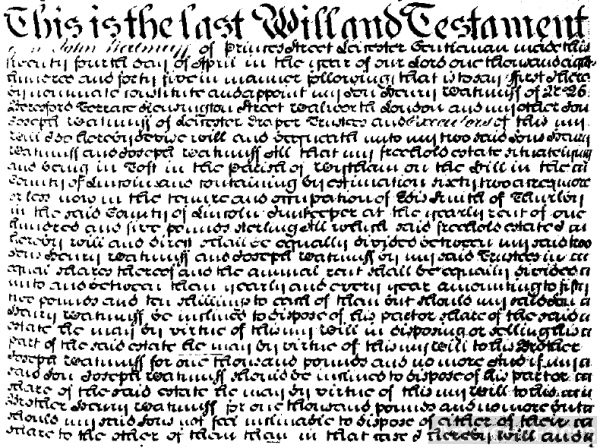 This is the last Will and Testament
John Watmuff of Princes Street Leicester Gentleman made this
twenty fourth day of April in the year of our Lord one thousand eight
hundred and forty five in manner following that is to say first I here
by nominate constitute and appoint my son Henry Watmuff of No 26
Hereford Terrace Newington Street Walworth London and my other son
Joseph Watmuff of Leicester Draper Trustees and Executors of this my
Will I do hereby devise will and bequeath unto my two said sons Henry
Watmuff and Joseph Watmuff All that my freehold estate situate lying
and being in Toft in the parish of Witham on the Hill in the
County of Lincoln and containing by estimation sixty two acres more
or less now in the tenure and occupation of Smith of Thurlby
in the said County of Lincoln Innkeeper at the yearly rent of one
hundred and five pounds sterling All which said freehold estate I
hereby will and direct shall be equally divided between my said two
sons Henry Watmuff and Joseph Watmuff by my said Trustees in
equal shares thereof and the annual rent shall be equally divided
unto and between them yearly and every year amounting to fifty
two pounds and ten shillings to each of them but should my said son
Henry Watmuff be inclined to dispose of his part or share of the said
estate he may by virtue of this my will in disposing or selling his
part of the said estate he may by virtue of this my will to his Brother
Joseph Watmuff for one thousand pounds and no more And if my
said son Joseph Watmuff should be inclined to dispose of his part or
share of the said estate he may by virtue of this my will to his
Brother Henry Watmuff for one thousand pounds and no more but
should my said sons not feel inclinable to dispose of either of their
share to the other of them then in that case I hereby will and